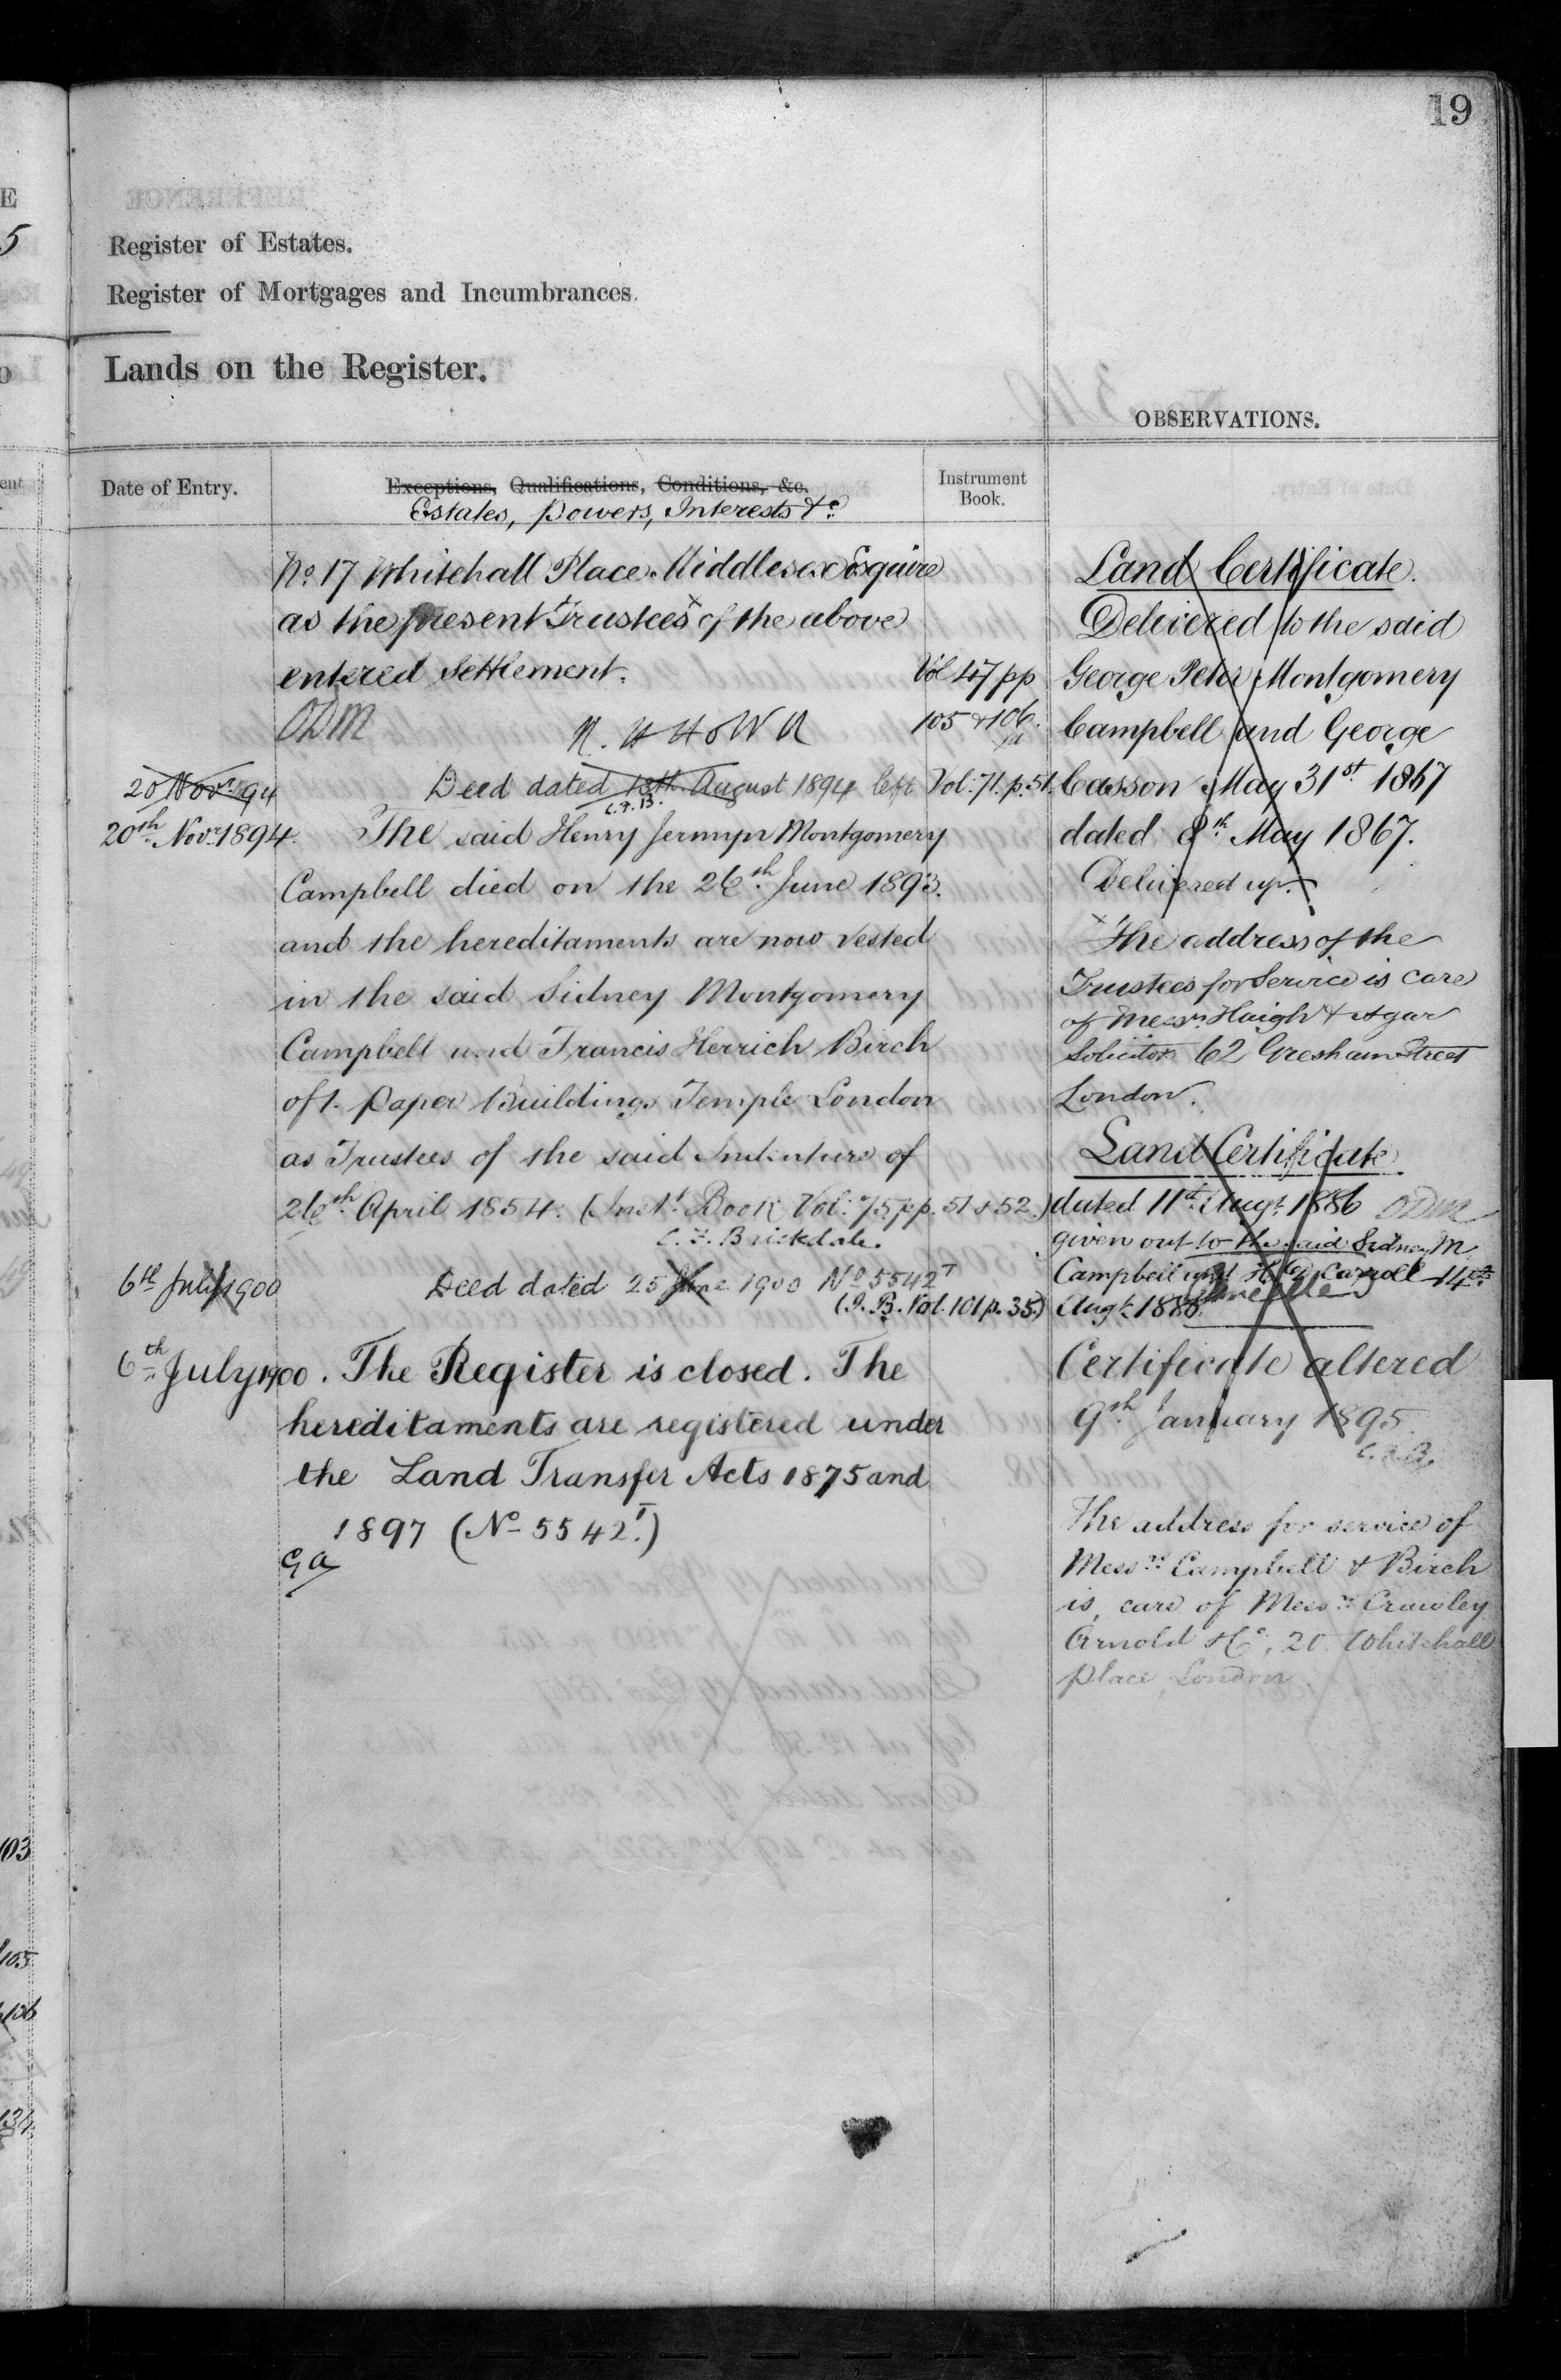 19
Register of Estates.
Register of Mortgages and Incumbrances.
Lands on the Register.
OBSERVATIONS.
Date of Entry.
Exceptions, Qualifications, Conditions, &c.
Estates, powers, Interests &c.
Instrument
Book.
No. 17 Whitehall Place Middlesex Esquire
as the present Trustees x of the above
entered Settlement.
Vol 47 pp
105 & 106.
ODM
20 Novr. 94
Deed dated 18th August 1894 left
Vol: 71. p. 51.
C.F.B.
20th Novr. 1894.
The said Henry Jermyn Montgomery
Campbell died on the 26th June 1893.
and the hereditaments are now vested
in the said Sidney Montgomery
Campbell and Francis Herrich Birch
of 1. Paper Buildings Temple London
as Trustees of the said Indenture of
26th April 1854. (Inst. Book Vol: 75 pp. 51 & 52.)
C. F. Brickdale.
6th July 1900
Deed dated 25 June 1900 No 5542T
(I.B. Vol. 101 p. 35.)
6th July 1900. The Register is closed. The
hereditaments are registered under
the Land Transfer Acts 1875 and
1897 (No 5542T.)
GA
Land Certificate.
Delivered to the said
George Peter Montgomery
Campbell and George
Casson May 31st 1867
dated 8th May 1867.
Delivered up.
x The address of the
Trustees for Service is care
of Messrs Haigh & Agar
Solicitors 62 Gresham Street
London.
Land Certificate
dated 11th Augt. 1886 ODM
given out to the said Sidney M.
Campbell and Carroll 14th
Augt. 1886.
Certificate altered
9th January 1895
C.F.B.
The address for service of
Messrs. Campbell & Birch
is, care of Messrs. Crawley
Arnold & Co, 20 Whitehall
place, London